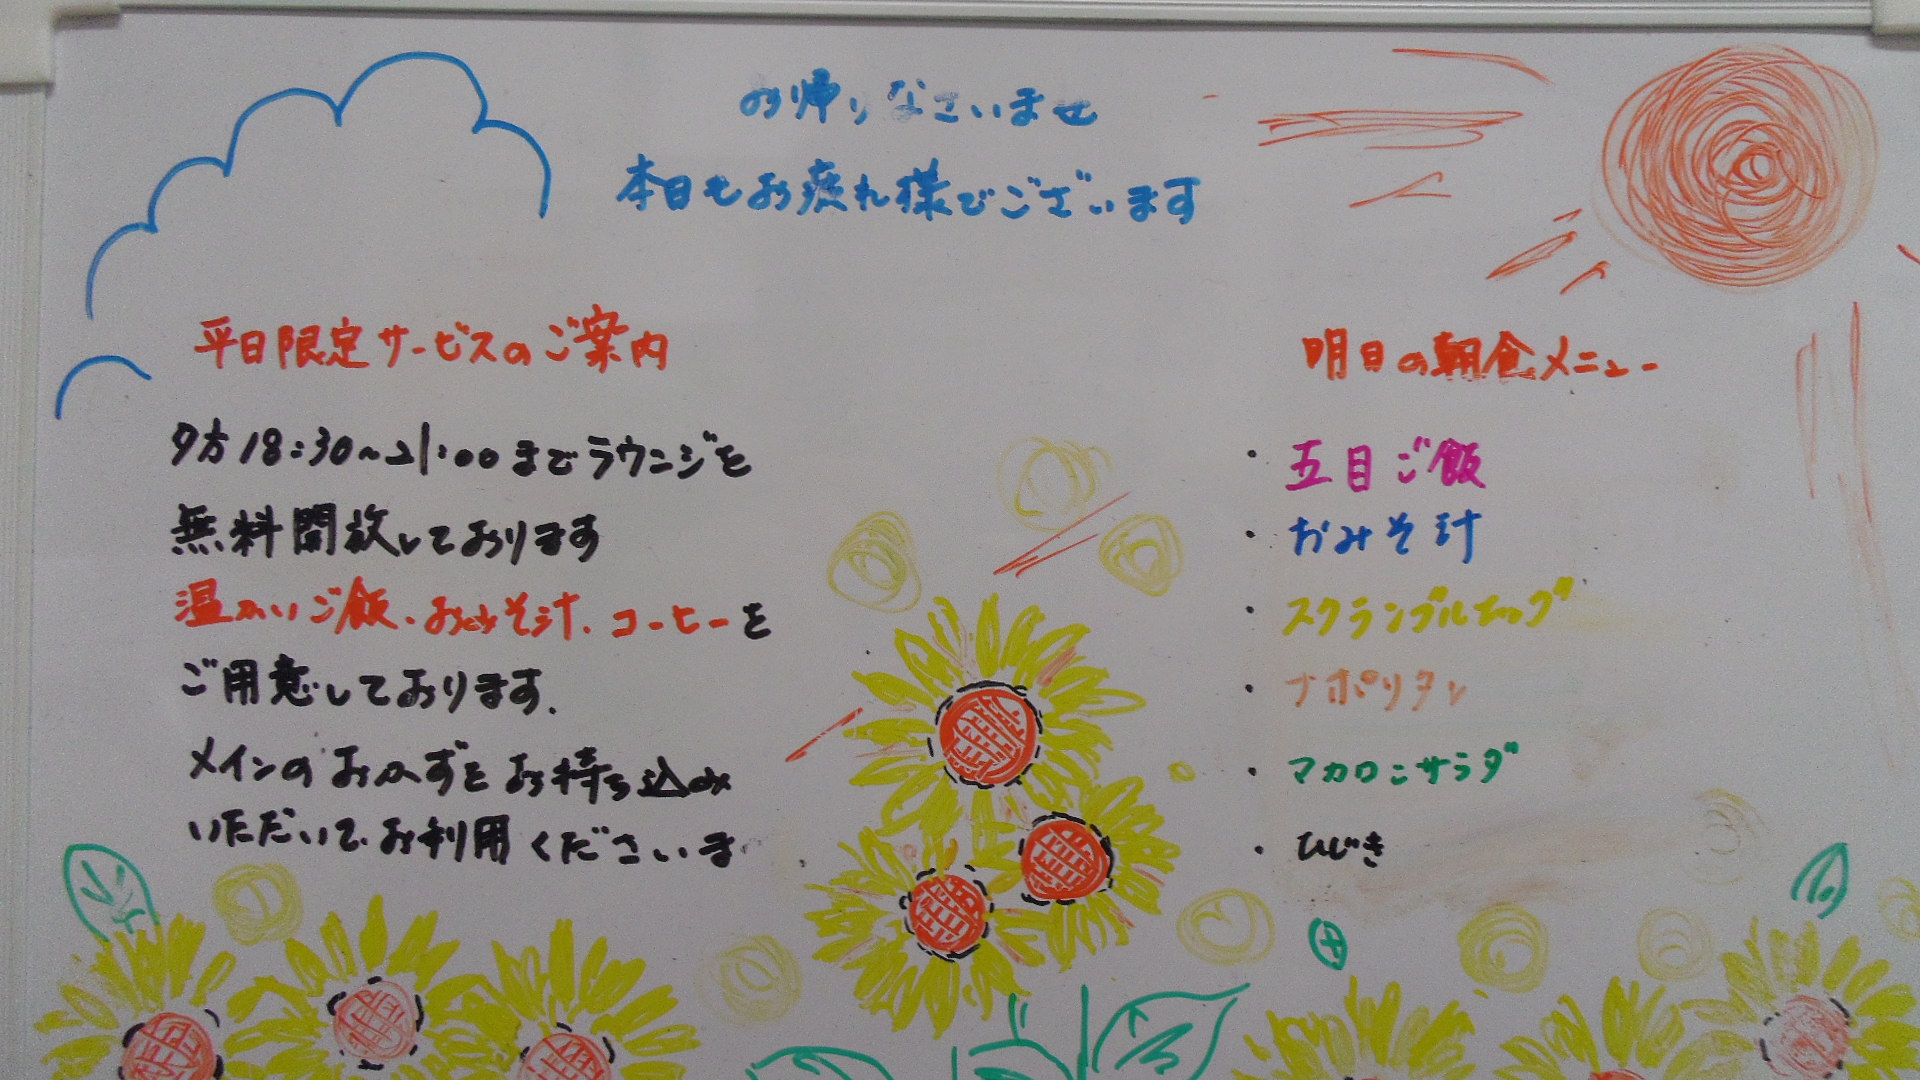 お帰りなさいませ
本日もお疲れ様でございます
平日限定サービスのご案内
夕方18:30~21:00までラウンジを
無料開放しております
温かいご飯、おみそ汁、コーヒーを
ご用意しております。
メインのおかずをお持ち込み
いただいて、お利用くださいま
明日の朝食メニュー
・五目ご飯
・おみそ汁
・スクランブルエッグ
・ナポリタン
・マカロニサラダ
・ひじき